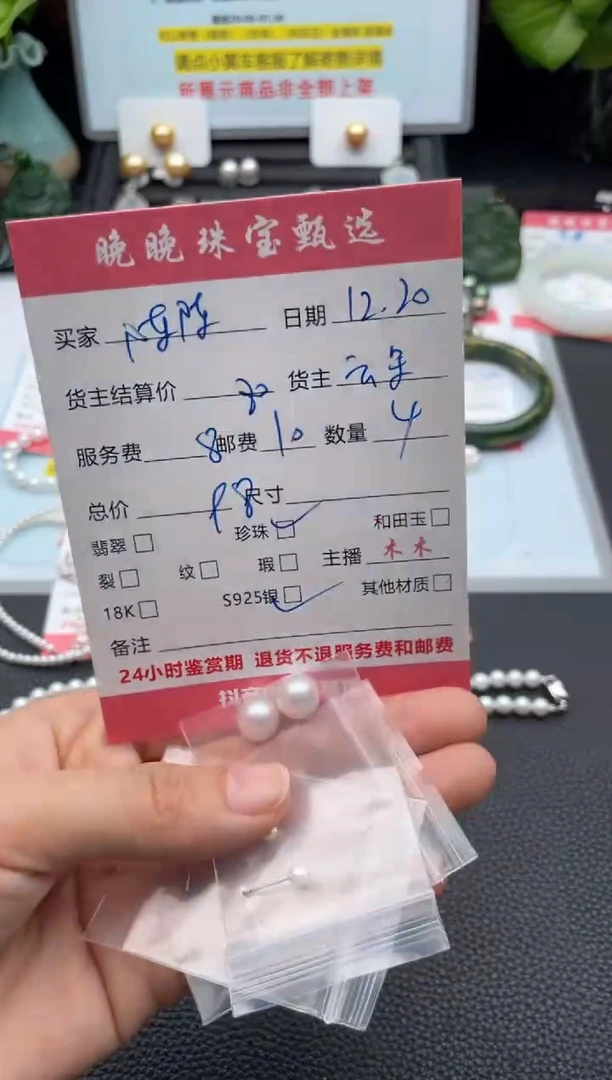 请点小黄车客服了解寄售详情
所展示商品非全部上架
晚晚珠宝甄选
买家 陈陈 日期 12.20
货主结算价 货主
服务费 8 邮费 10 数量 4
总价 98 尺寸
翡翠 珍珠 和田玉
裂 纹 瑕 主播 木木
18K S925银 其他材质
备注
24小时鉴赏期 退货不退服务费和邮费